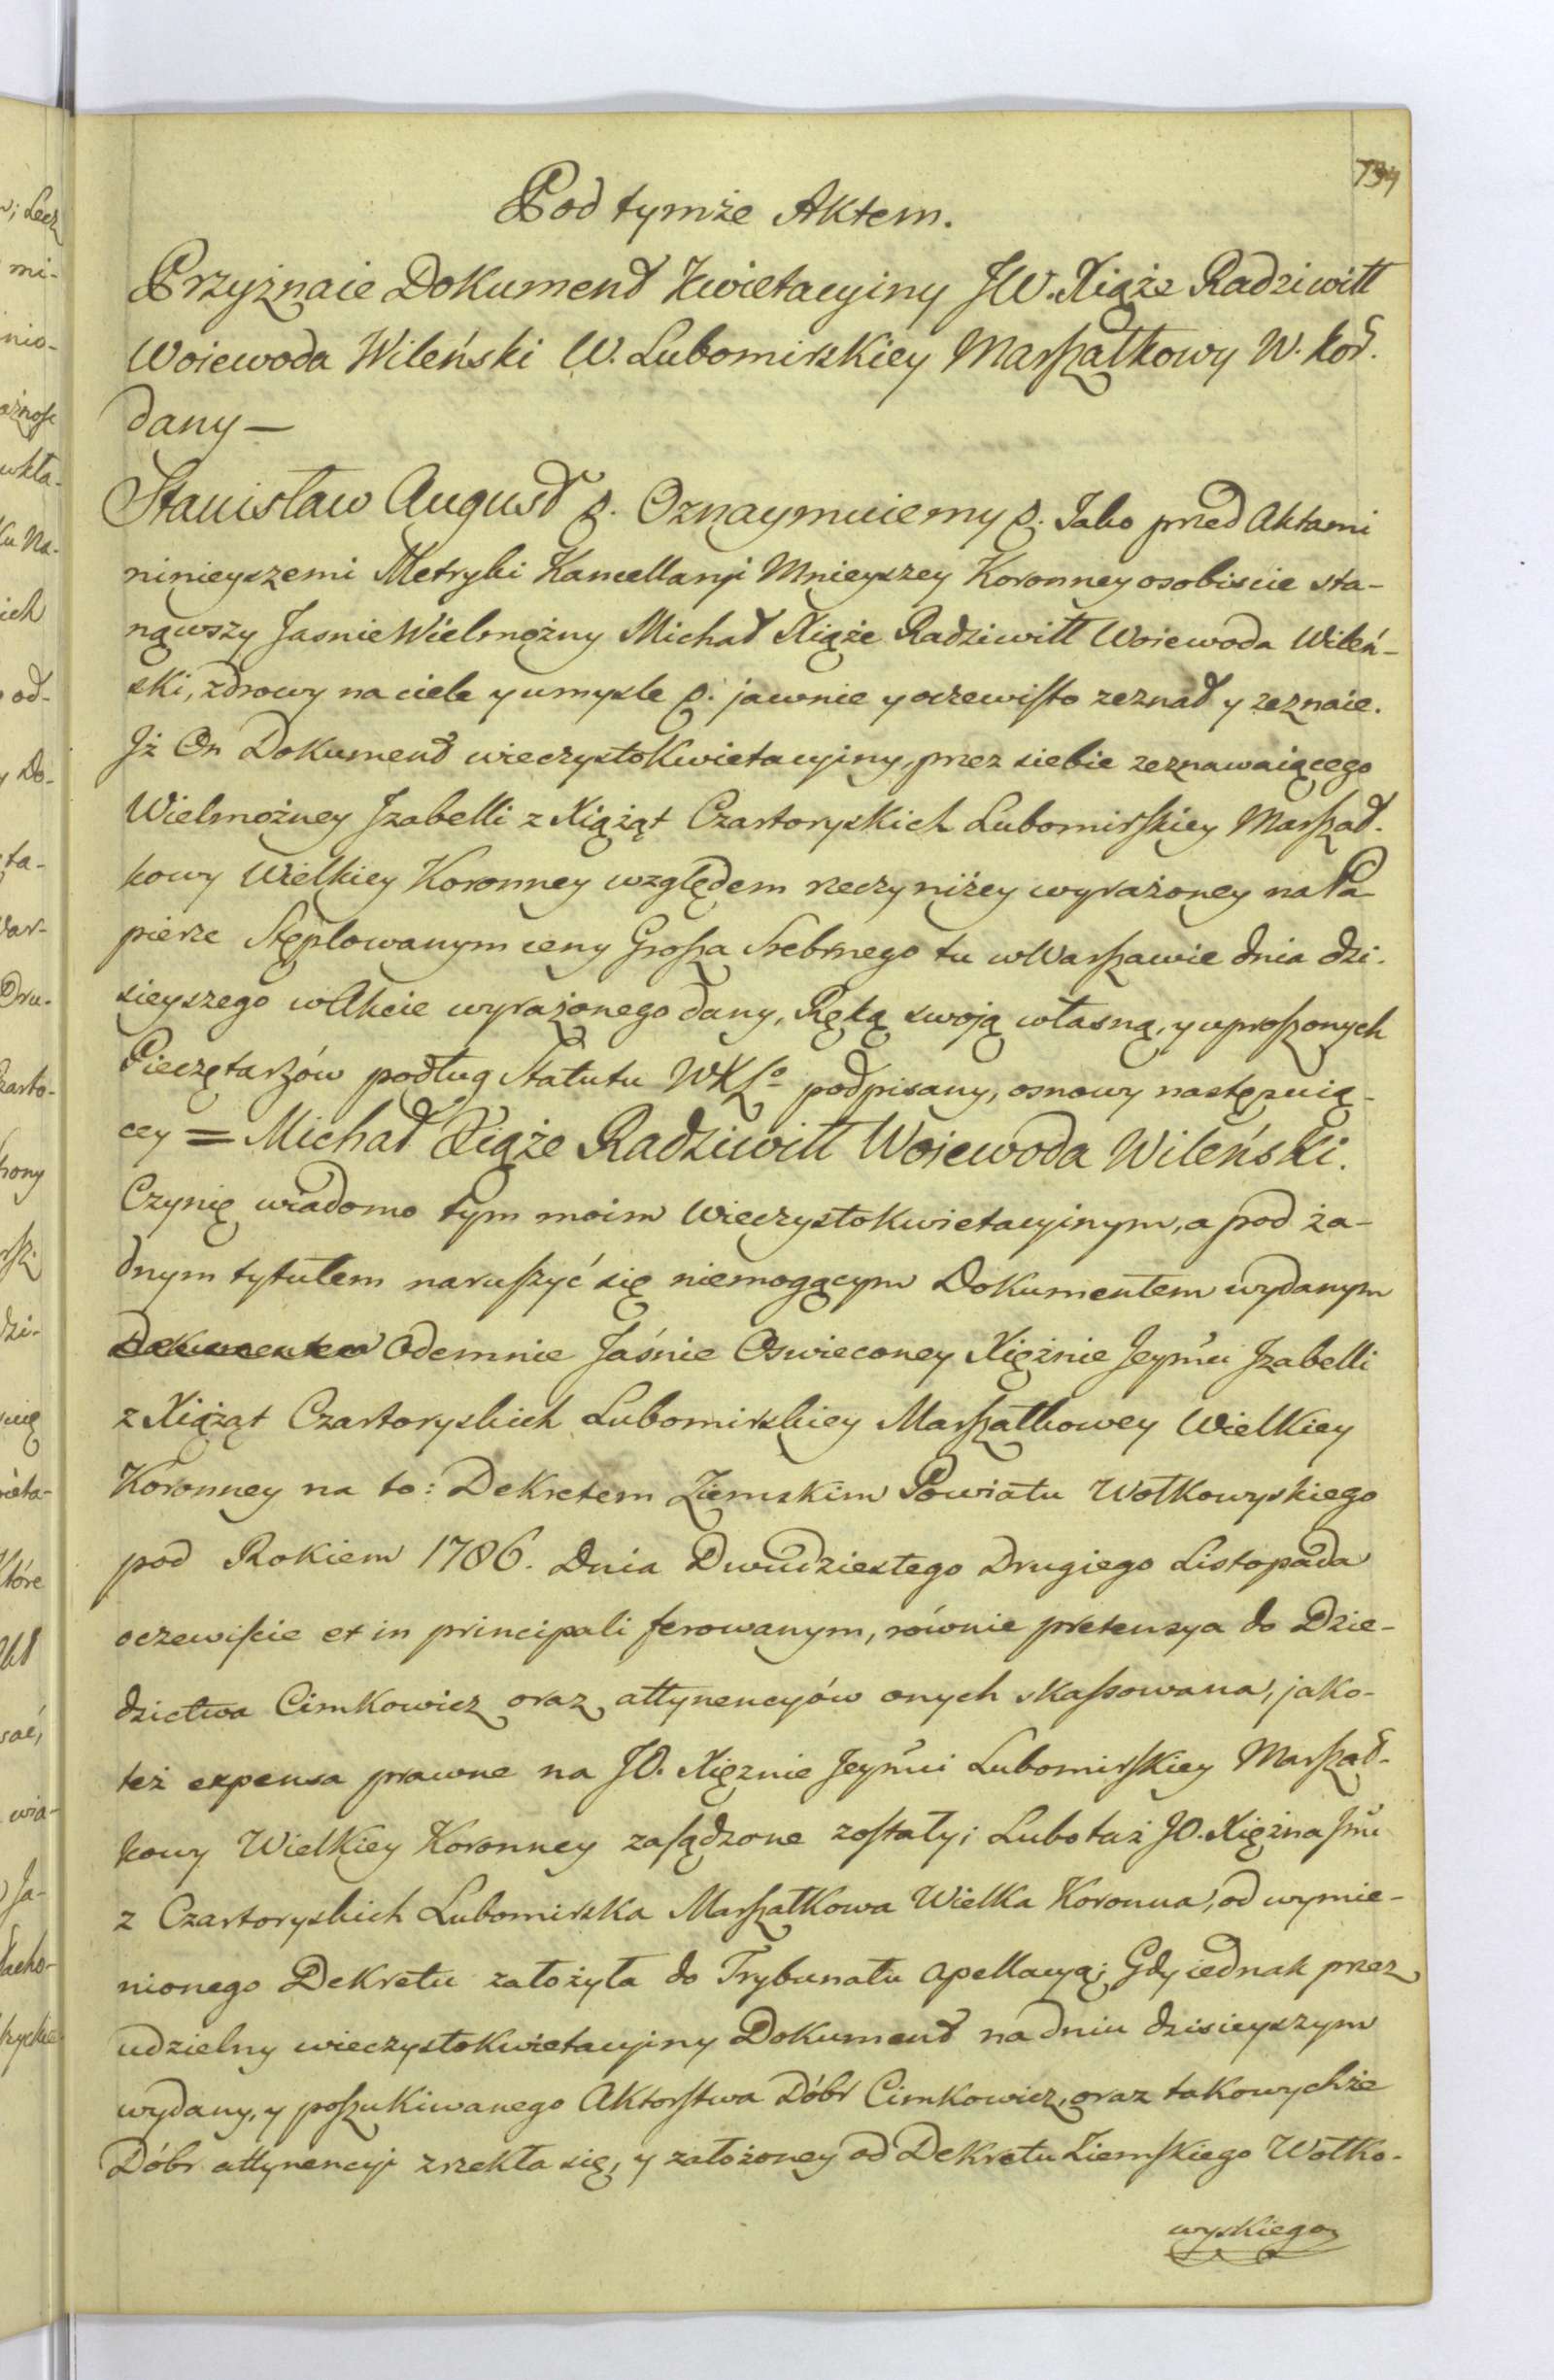 794
Pod tymże Aktem.
Przyznaie Dokument Kwietacyiny JW. Xiąże Radziwiłł
Woiewoda Wileński W. Lubomirskiey Marszałkowy W. Kor.
dany —
Stanisław August p. Oznaymuiemy p. Iako przed Aktami
ninieyszemi Metryki Kancellaryi Mnieyszey Koronney osobiscie sta-
nąwszy Jasnie Wielmożny Michał Xiąże Radziwiłł Woiewoda Wileń-
ski, zdrowy na ciele y umysle p. jawnie y oczewisto zeznał y zeznaie.
Jż On Dokument wieczystokwietacyiny, przez siebie zeznawaiącego
Wielmożney Jzabelli z Xiążąt Czartoryskich Lubomirskiey Marszał-
kowy Wielkiey Koronney względem rzeczy niżey wyrażoney na Pa
pierze Stęplowanym ceny Grosza Srebrnego tu w Warszawie dnia dzi-
sieyszego w Akcie wyrażonego dany, Ręką swoią własną, y uproszonych
Pieczętarzów podług Statutu WXLo podpisany, osnowy następuią-
cey = Michał Xiąże Radziwiłł Woiewoda Wileński.
Czynię wiadomo tym moim wieczystokwietacyinym, a pod ża-
dnym tytułem naruszyć się niemogącym Dokumentem wydanym
Dokumentem Odemnie Jaśnie Oswieconey Xiężnie Jeymci Jzabelli
z Xiążąt Czartoryskich Lubomirskiey Marszałkowey Wielkiey
Koronney na to: Dekretem Ziemskim Powiatu Wołkowyskiego
pod Rokiem 1786. Dnia Dwudziestego Drugiego Listopada
oczewiscie et in principali ferowanym, równie pretensya do Dzie-
dzictwa Cimkowicz oraz attynencyów onych skassowana, jako-
też expensa prawne na JO. Xięznie Jeymci Lubomirskiey Marszał-
kowy Wielkiey Koronney zasądzone zostały; Lubo taż JO. Xiężna Jmć
z Czartoryskich Lubomirska Marszałkowa Wielka Koronna, od wymie-
nionego Dekretu założyła do Trybunału apellacyą; Gdy iednak przez
udzielny wieczystokwietacyiny Dokument na dniu dzisieyszym
wydany, y poszukiwanego Aktorstwa Dóbr Cimkowicz, oraz takowychże
Dóbr attynencyi zrzekła się, y założoney od Dekretu Ziemskiego Wołko-
wyskiego